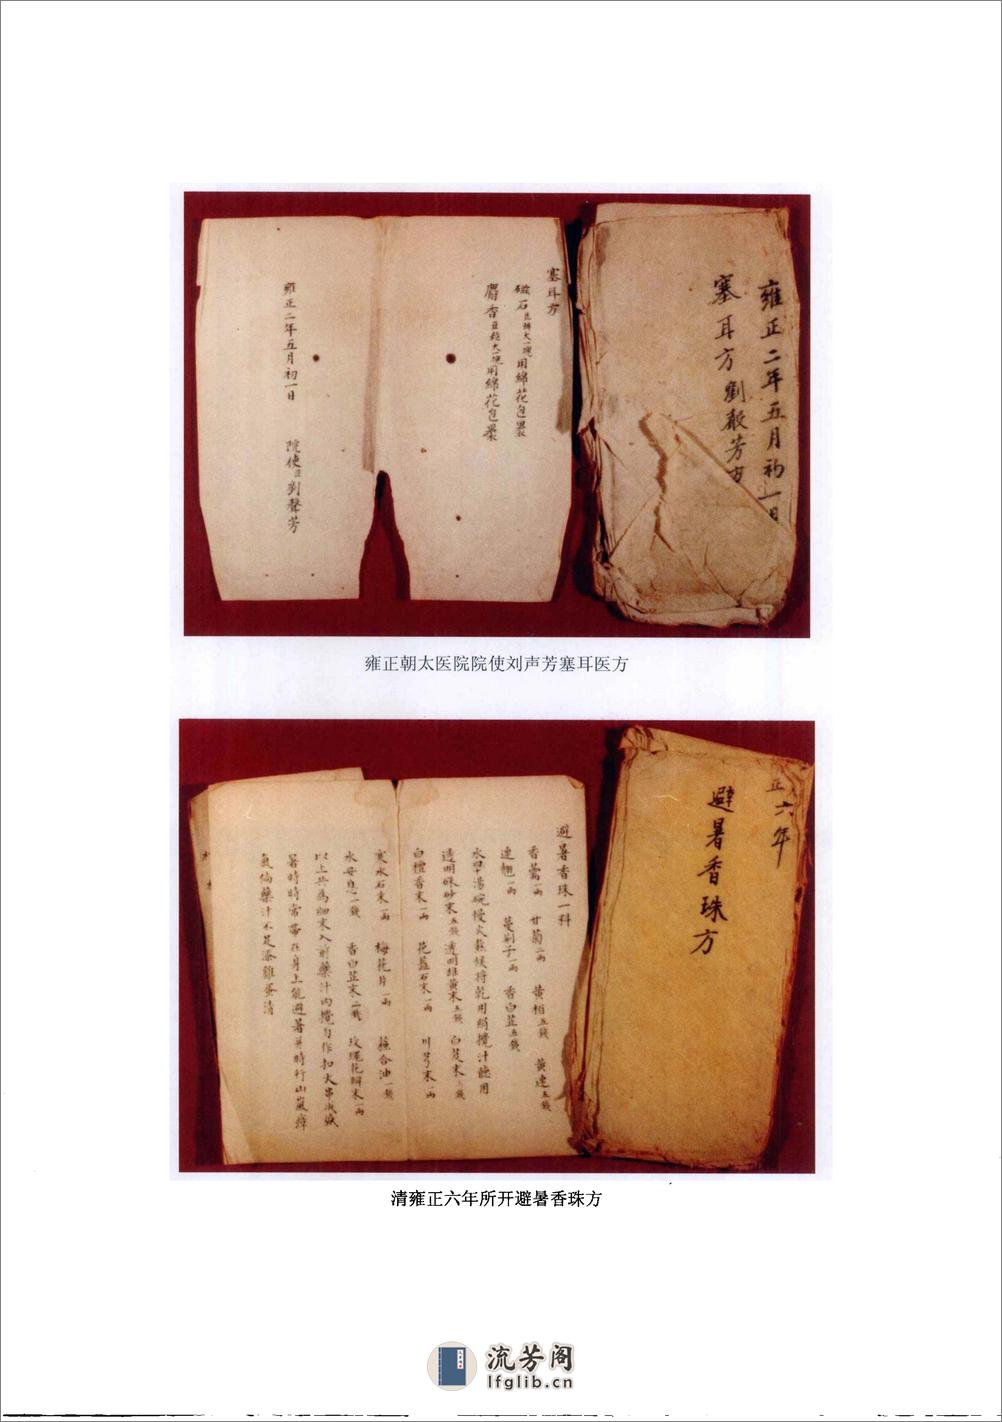 塞耳方
磁石豆瓣大一塊用綿花包裹
麝香豆粒大一塊用綿花包裹
雍正二年五月初一日
院使臣劉聲芳
雍正二年五月初一日
塞耳方劉聲芳方
雍正朝太医院院使刘声芳塞耳医方
避暑香珠一料
香薷一兩 甘菊二兩 黄柏五錢 黄連五錢
連翹一兩 蔓荆子一兩 香白芷五錢
湯碗慢火熬候将乾用絹攪汁聽用
透明硃砂末五錢 透明雄黄末五錢 白芨末
白檀香末一兩 花蕊石末一兩 川芎末一兩
寒水石末一兩 梅花片一兩 蘇合油一錢
水安息一錢 香白芷末二錢 玫瑰花瓣末一兩
以上共為細末入前藥汁内攪匀作扣大串
暑時時常帶在身上能避暑並時行山嵐瘴
氣倘藥汁不足添雞蛋清
正六年
避暑香珠方
清雍正六年所开避暑香珠方
流芳阁
lfglib.cn